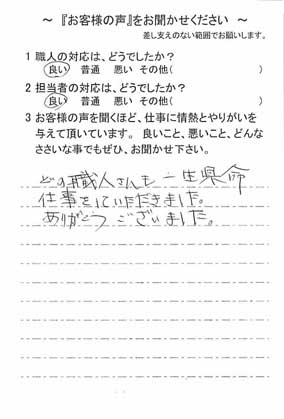 ～ 『お客様の声』をお聞かせください ～
差し支えのない範囲でお願いします。
1 職人の対応は、どうでしたか？
良い 普通 悪い その他( )
2 担当者の対応は、どうでしたか？
良い 普通 悪い その他( )
3 お客様の声を聞くほど、仕事に情熱とやりがいを
与えて頂いています。 良いこと、悪いこと、どんな
ささいな事でもぜひ、お聞かせ下さい。
どの職人さんも一生県命
仕事をしていただきました。
ありがとうございました。